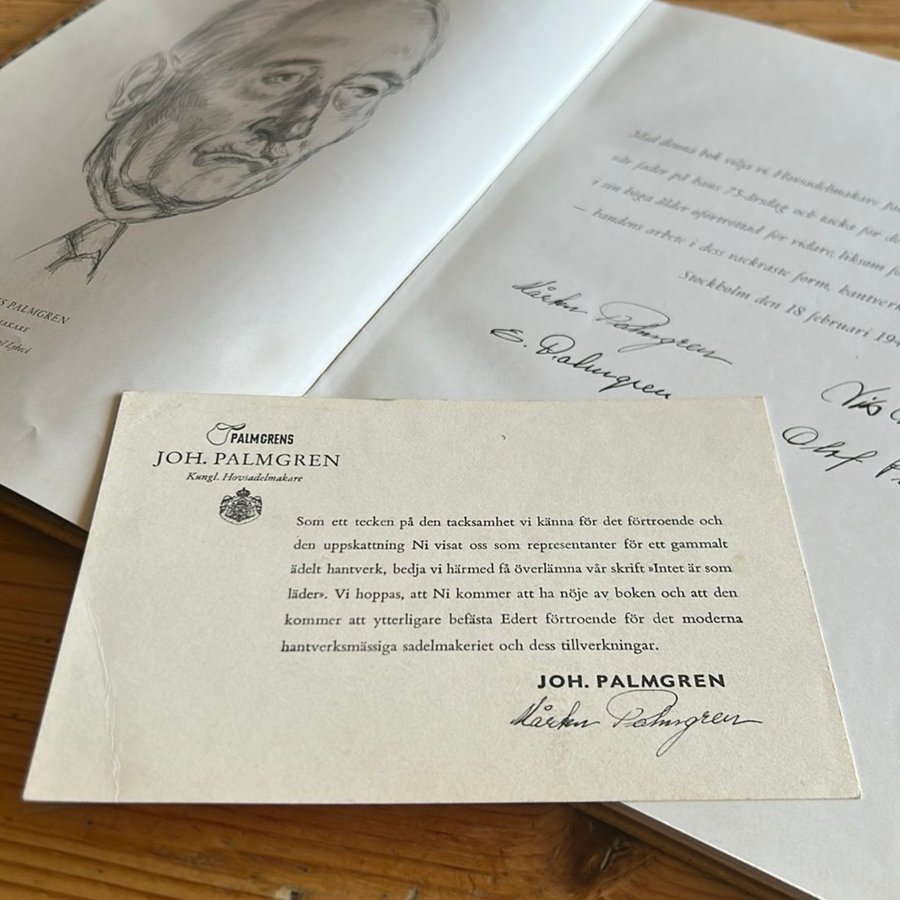 S PALMGREN
MAKARE
Lybeck
Med denna bok vilja vi, Hovsadelmakare
vår fader på hans 75-årsdag och tacka för
i sin höga ålder oförtrutet för vidare, liksom
— handens arbete i dess vackraste form, hantverk
Stockholm den 18 februari 194
Mårten Palmgren
E. Palmgren
Olof
PALMGRENS
JOH. PALMGREN
Kungl. Hovsadelmakare
Som ett tecken på den tacksamhet vi känna för det förtroende och
den uppskattning Ni visat oss som representanter för ett gammalt
ädelt hantverk, bedja vi härmed få överlämna vår skrift »Intet är som
läder». Vi hoppas, att Ni kommer att ha nöje av boken och att den
kommer att ytterligare befästa Edert förtroende för det moderna
hantverksmässiga sadelmakeriet och dess tillverkningar.
JOH. PALMGREN
Mårten Palmgren